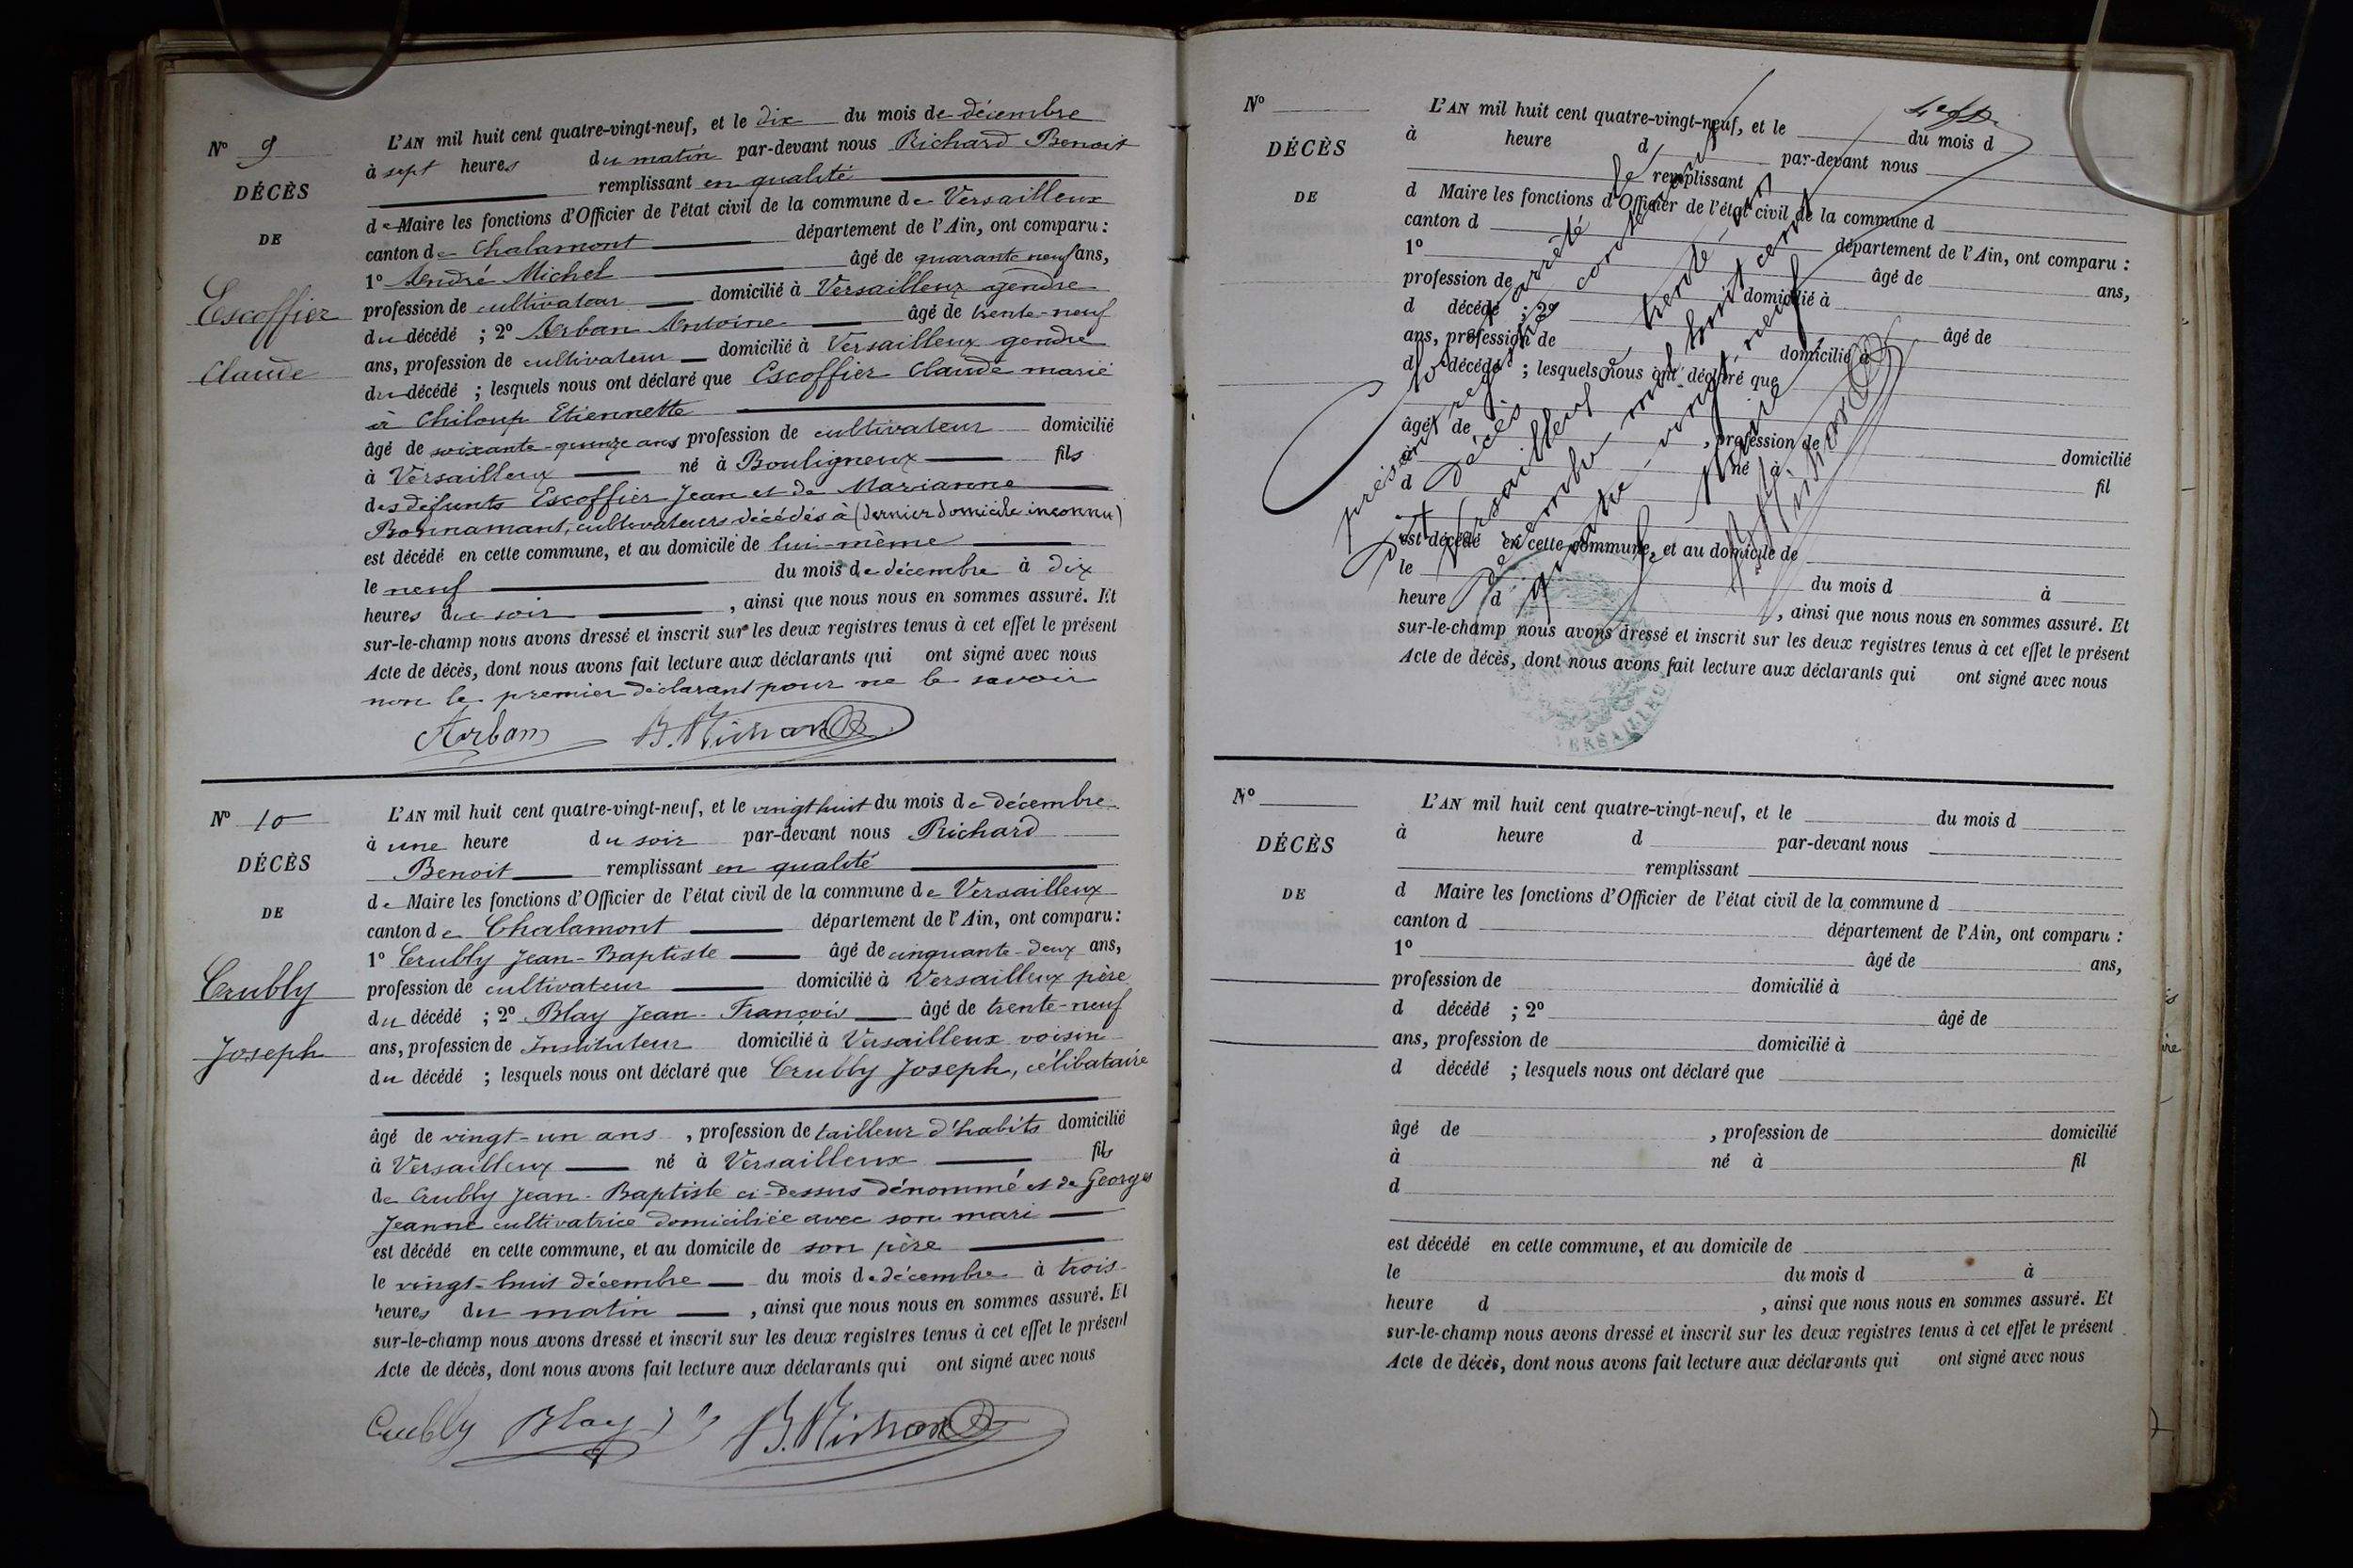 N° 9
DÉCÈS
DE
Escoffier
Claude
L'AN mil huit cent quatre-vingt-neuf, et le dix du mois de décembre
à sept heures du matin par-devant nous Richard Benoit
remplissant en qualité
de Maire les fonctions d'Officier de l'état civil de la commune de Versailleux
canton de Chalamont département de l'Ain, ont comparu :
1° André Michel âgé de quarante neuf ans,
profession de cultivateur domicilié à Versailleux gendre
du décédé ; 2° Arban Antoine âgé de trente-neuf
ans, profession de cultivateur domicilié à Versailleux gendre
du décédé ; lesquels nous ont déclaré que Escoffier Claude marié
à Chiloup Etiennette
âgé de soixante-quinze ans profession de cultivateur domicilié
à Versailleux né à Bouligneux fils
des défunts Escoffier Jean et de Marianne
Bonnamant, cultivateurs décédés à (dernier domicile inconnu)
est décédé en cette commune, et au domicile de lui-même
le neuf du mois de décembre à dix
heures du soir , ainsi que nous nous en sommes assuré. Et
sur-le-champ nous avons dressé et inscrit sur les deux registres tenus à cet effet le présent
Acte de décès, dont nous avons fait lecture aux déclarants qui ont signé avec nous
non le premier déclarant pour ne le savoir
Arban B. Richard
N° 10
DÉCÈS
DE
Crubly
Joseph
L'AN mil huit cent quatre-vingt-neuf, et le vingt huit du mois de décembre
à une heure du soir par-devant nous Richard
Benoit remplissant en qualité
de Maire les fonctions d'Officier de l'état civil de la commune de Versailleux
canton de Chalamont département de l'Ain, ont comparu :
1° Crubly Jean-Baptiste âgé de cinquante-deux ans,
profession de cultivateur domicilié à Versailleux père
du décédé ; 2° Blay Jean-François âgé de trente-neuf
ans, profession de Instituteur domicilié à Versailleux voisin
du décédé ; lesquels nous ont déclaré que Crubly Joseph, célibataire
âgé de vingt-un ans , profession de tailleur d'habits domicilié
à Versailleux né à Versailleux fils
de Crubly Jean-Baptiste ci-dessus dénommé et de Georges
Jeanne cultivatrice domiciliée avec son mari
est décédé en cette commune, et au domicile de son père
le vingt-huit décembre du mois de décembre à trois
heures du matin , ainsi que nous nous en sommes assuré. Et
sur-le-champ nous avons dressé et inscrit sur les deux registres tenus à cet effet le présent
Acte de décès, dont nous avons fait lecture aux déclarants qui ont signé avec nous
Crubly Blay B. Richard
N°
DÉCÈS
DE
L'AN mil huit cent quatre-vingt-neuf, et le du mois d
à heure d par-devant nous
remplissant
d Maire les fonctions d'Officier de l'état civil de la commune d
canton d département de l'Ain, ont comparu :
1° âgé de ans,
profession de domicilié à
d décédé ; 2° âgé de
ans, profession de domicilié à
d décédé ; lesquels nous ont déclaré que
âgé de , profession de domicilié
à né à fil
d
est décédé en cette commune, et au domicile de
le du mois d à
heure d , ainsi que nous nous en sommes assuré. Et
sur-le-champ nous avons dressé et inscrit sur les deux registres tenus à cet effet le présent
Acte de décès, dont nous avons fait lecture aux déclarants qui ont signé avec nous
Clos et arrêté le
présent registre contenant
décès
Versailleux trente-un
décembre mil huit cent
quatre-vingt-neuf
Le Maire
B. Richard
VERSAILLEUX
N°
DÉCÈS
DE
L'AN mil huit cent quatre-vingt-neuf, et le du mois d
à heure d par-devant nous
remplissant
d Maire les fonctions d'Officier de l'état civil de la commune d
canton d département de l'Ain, ont comparu :
1° âgé de ans,
profession de domicilié à
d décédé ; 2° âgé de
ans, profession de domicilié à
d décédé ; lesquels nous ont déclaré que
âgé de , profession de domicilié
à né à fil
d
est décédé en cette commune, et au domicile de
le du mois d à
heure d , ainsi que nous nous en sommes assuré. Et
sur-le-champ nous avons dressé et inscrit sur les deux registres tenus à cet effet le présent
Acte de décès, dont nous avons fait lecture aux déclarants qui ont signé avec nous